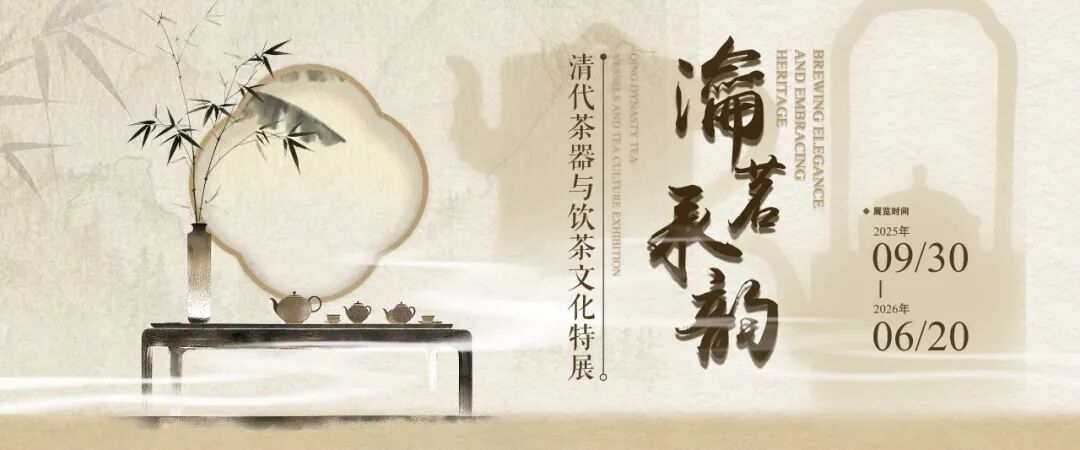 瀹茗承韵
BREWING ELEGANCE
AND EMBRACING
HERITAGE
清代茶器与饮茶文化特展
QING DYNASTY TEA
VESSELS AND TEA CULTURE EXHIBITION
展览时间
2025年
09/30
2026年
06/20